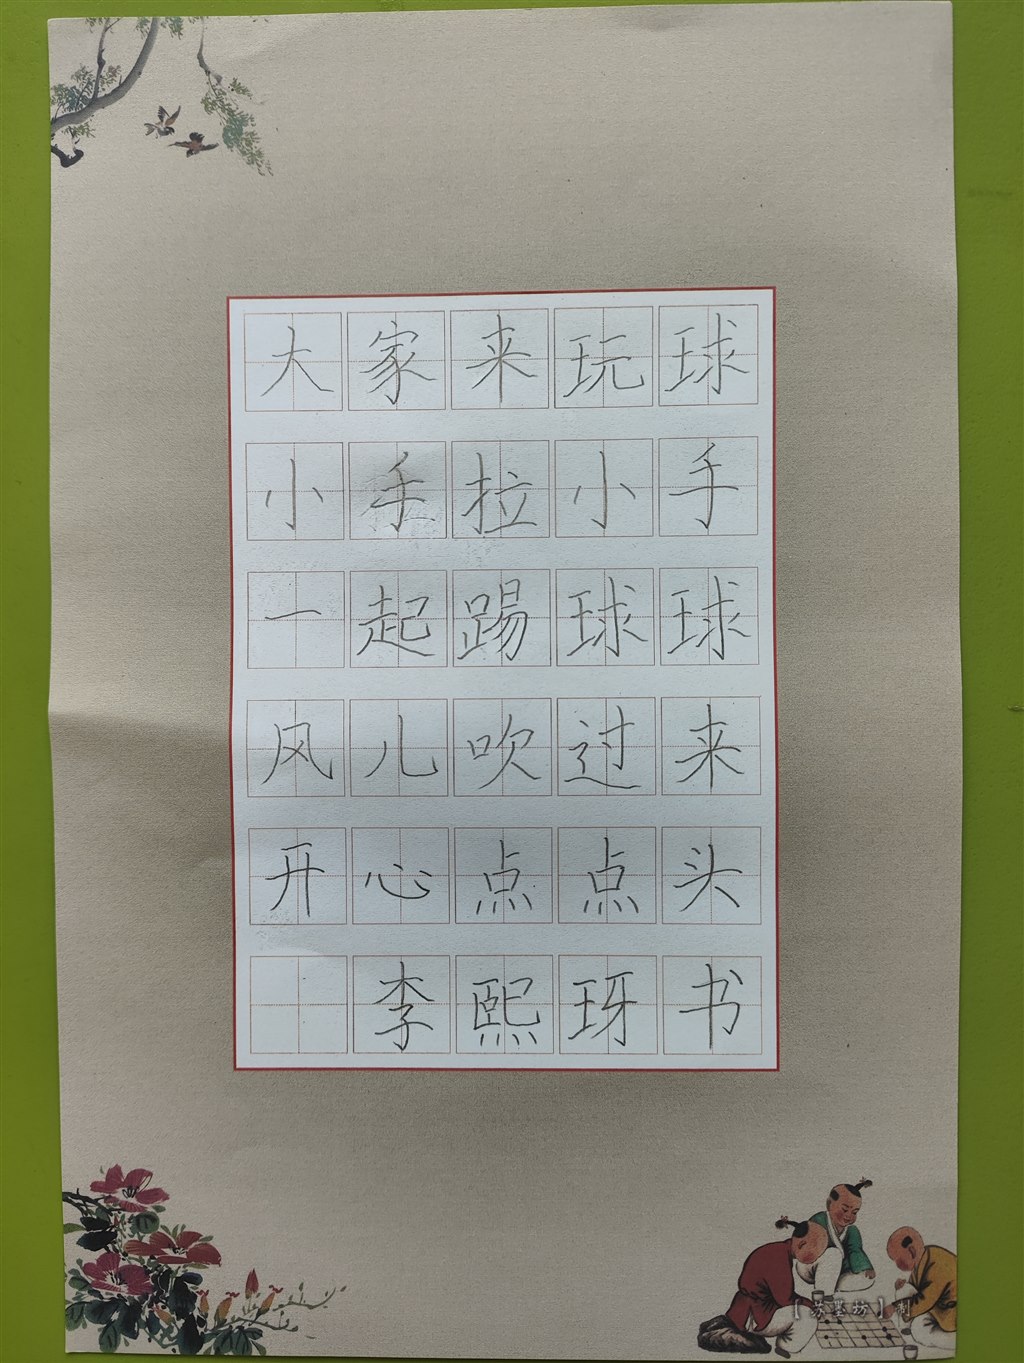 大家来玩球
小手拉小手
一起踢球球
风儿吹过来
开心点点头
李熙玡书
【苏墨坊】制